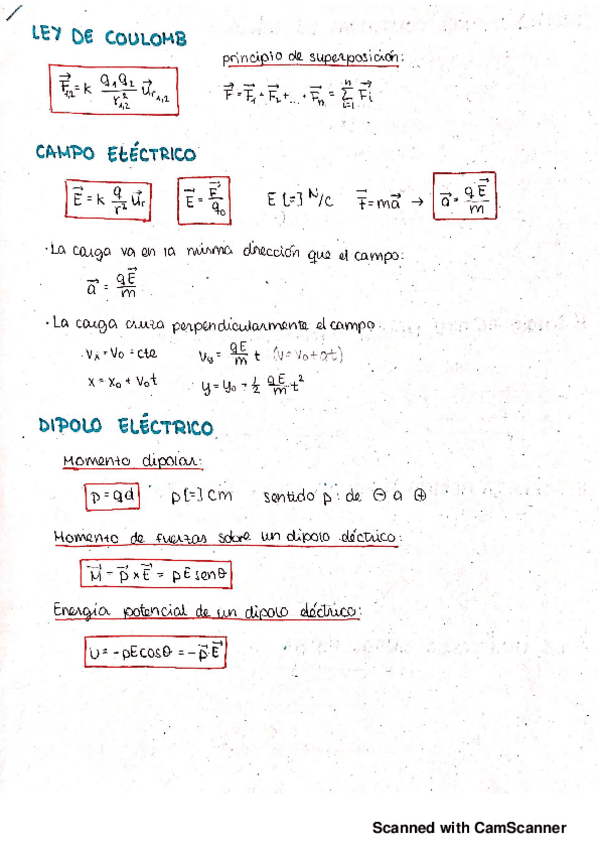 LEY DE COULOMB
principio de superposición:
F⃗₁,₂ = k q₁q₂/r²₁,₂ u⃗r₁,₂
F⃗ = F⃗₁ + F⃗₂ + ... + F⃗n = Σⁿᵢ₌₁ F⃗i
CAMPO ELÉCTRICO
E⃗ = k q/r² u⃗r
E⃗ = F⃗/q₀
E [=] N/C
F⃗ = ma⃗ → a⃗ = qE⃗/m
· La carga va en la misma dirección que el campo:
a⃗ = qE⃗/m
· La carga cruza perpendicularmente el campo:
vₓ = v₀ = cte
vy = qE/m t (v = v₀ + at)
x = x₀ + v₀t
y = y₀ + 1/2 qE/m t²
DIPOLO ELÉCTRICO
Momento dipolar:
p = qd
p [=] Cm
sentido p: de ⊖ a ⊕
Momento de fuerzas sobre un dipolo eléctrico:
M⃗ = p⃗ × E⃗ = pE senθ
Energía potencial de un dipolo eléctrico:
U = -pE cosθ = -p⃗ E⃗
Scanned with CamScanner